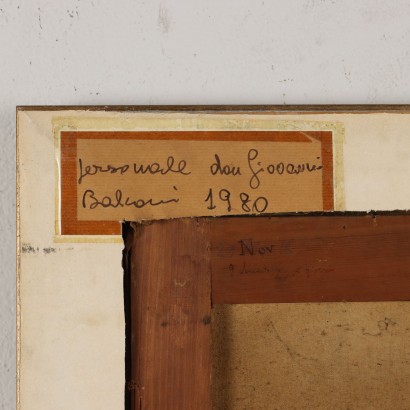 personale don Giovanni
Balconi 1980
Nov